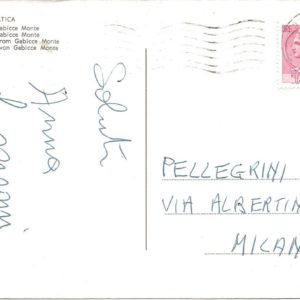 TICA
Gabicce Monte
Gabicce Monte
from Gabicce Monte
von Gabicce Monte
Saluti
Anna
PELLEGRINI
VIA ALBERTIN
MILAN